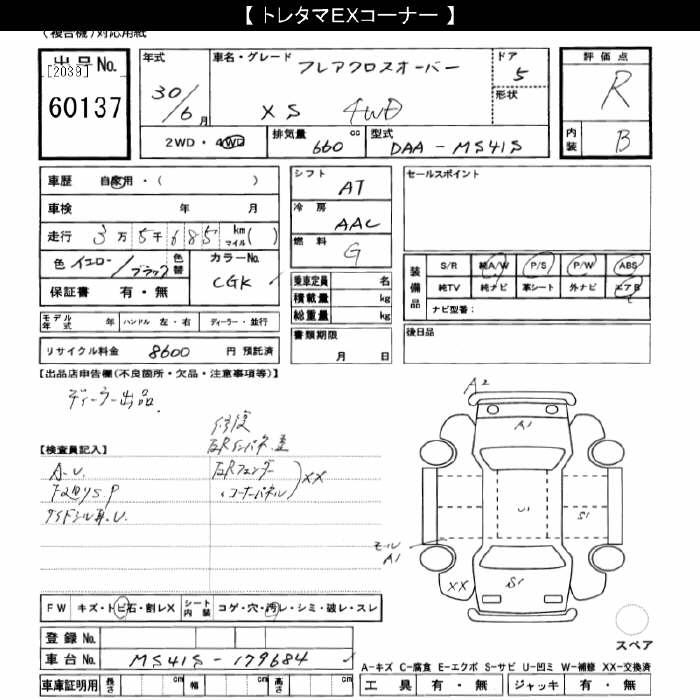 【 トレタマEXコーナー 】
(複合機)対応用紙
出品No.
[2039]
60137
年式
30/6月
車名・グレード
フレアクロスオーバー
XS 4WD
ドア
5
形状
評価点
R
内装
B
2WD・4WD
排気量
660
cc
型式
DAA-MS41S
車歴 自家用・( )
車検 年 月
走行 3万5千685 km マイル( )
色 イエロー/ブラック 色替
カラーNo.
CGK
保証書 有・無
シフト
AT
冷房
AAC
燃料
G
乗車定員 名
積載量 kg
総重量 kg
セールスポイント
装備品
S/R 純A/W P/S P/W ABS
純TV 純ナビ 革シート 外ナビ エアB
ナビ型番:
モデル年式 年 ハンドル 左・右 ディーラー・並行
書類期限
月 日
後日品
リサイクル料金 8600 円 預託済
【出品店申告欄(不良箇所・欠品・注意事項等)】
ディーラー出品
【検査員記入】
修復
A.U.
右Rフェンダー
コーナーパネル
XX
A2
A1
U1
S1
モール
A1
XX
S1
FW キズ・トビ石・割レX
シート内装 コゲ・穴・汚レ・シミ・破レ・スレ
登録No.
車台No. MS41S-179684
スペア
A-キズ C-腐食 E-エクボ S-サビ U-凹ミ W-補修 XX-交換済
車庫証明用 長さ cm 幅 cm 高さ cm
工具 有・無 ジャッキ 有・無